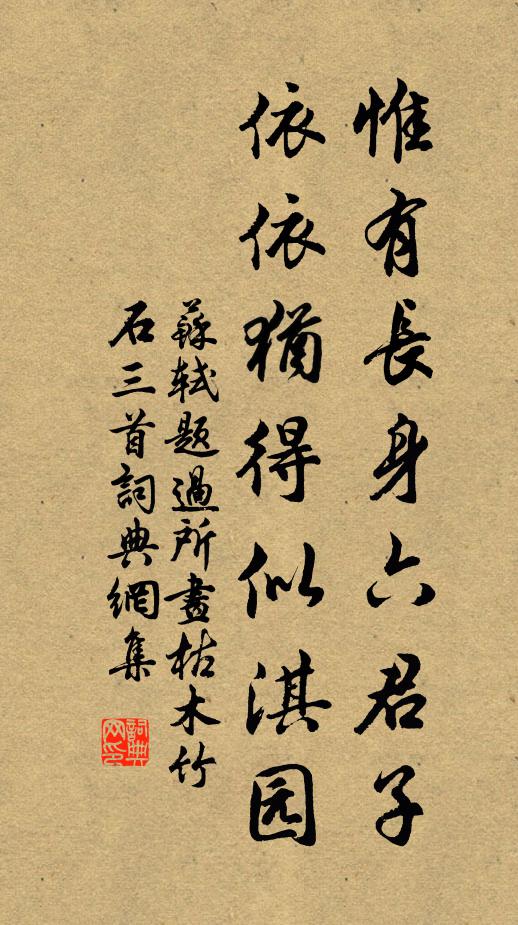 惟有長身六君子
依依猶得似淇园
蘇軾題過所畫枯木竹
石三首詞典網集
詞典
网印